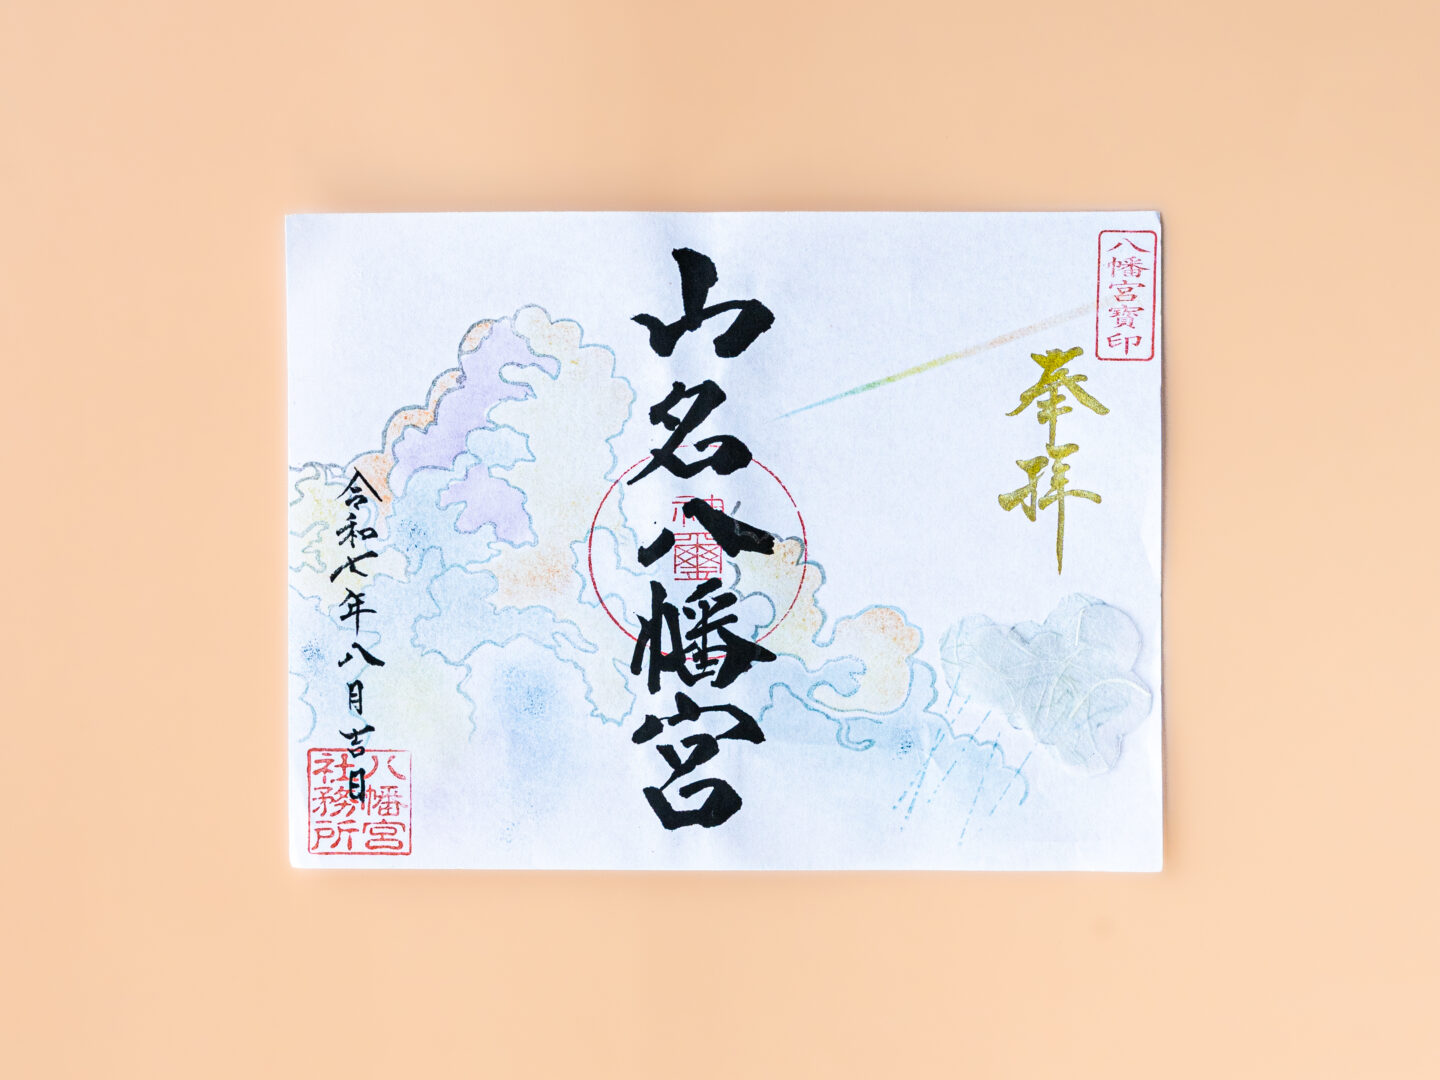 八幡宮寶印
奉拝
山名八幡宮
神璽
令和七年八月吉日
八幡宮
社務所